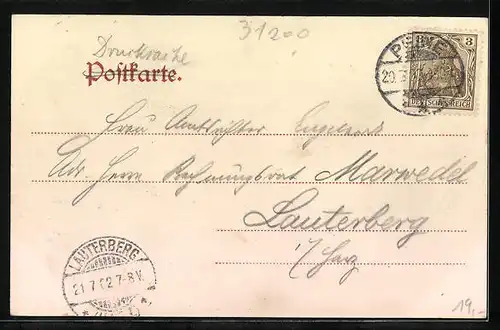 31200
Drucksache
Postkarte.
PEINE
3 3
DEUTSCHES REICH
Frau Amtsrichter
Adr. Herrn Rechnungsrat Marwedel
Lauterberg
i/Harz
LAUTERBERG
21.7.02.7-8V.
19,-